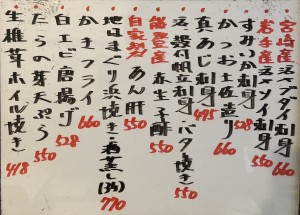 宮崎産 活〆ブダイ刺身 550
岩手産 活〆ソイ刺身 660
すみいか刺身 550
かつお土佐造り 528
真あじ刺身 495
活〆 帆立刺身・バター焼き 550
能登産 赤生子酢 550
自家製 あん肝 550
地はまぐり浜焼き・酒蒸し(3ヶ) 770
かきフライ 660
白エビ唐揚げ 528
たらの芽天ぷら 550
生椎茸ホイル焼き 418